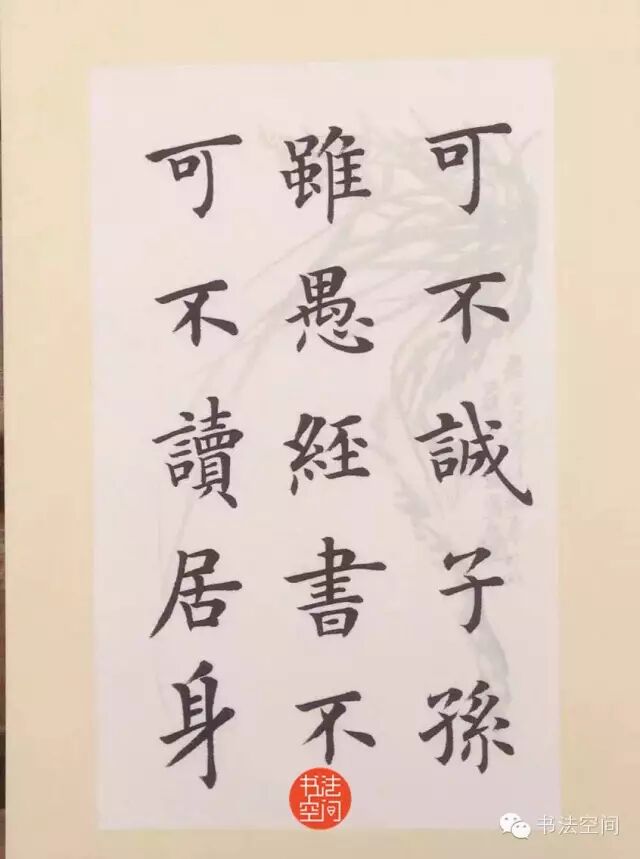 可不誠子孫
雖愚經書不
可不讀居身
书法空间
书法空间